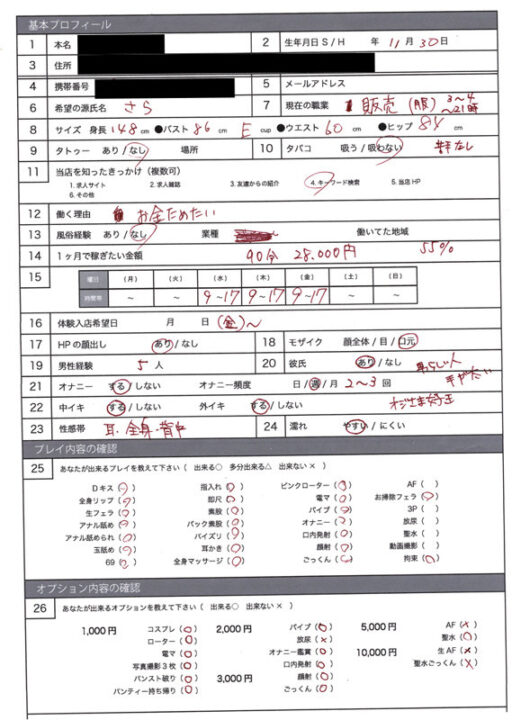 基本プロフィール
1 本名 2 生年月日 S / H 年 11月 30日
3 住所
4 携帯番号 5 メールアドレス
6 希望の源氏名 さら 7 現在の職業 販売(服) 3〜4 〜21時
8 サイズ 身長 148 cm ●バスト 86 cm E cup ●ウエスト 60 cm ●ヒップ 84 cm
9 タトゥー あり / なし 場所 10 タバコ 吸う / 吸わない
11 当店を知ったきっかけ(複数可)
1. 求人サイト 2. 求人雑誌 3. 友達からの紹介 4. キーワード検索 5. 当店HP
6. その他
12 働く理由 お金ためたい
13 風俗経験 あり / なし 業種 働いてた地域
14 1ヶ月で稼ぎたい金額 90分 28.000円 55%
15 曜日 (月) (火) (水) (木) (金) (土) (日)
時間帯 〜 〜 9〜17 9〜17 9〜17 〜 〜
16 体験入店希望日 月 日 (金)〜
17 HPの顔出し あり / なし 18 モザイク 顔全体 / 目 / 口元
19 男性経験 5 人 20 彼氏 あり / なし
21 オナニー する / しない オナニー頻度 日 / 週 / 月 2〜3 回
22 中イキ する / しない 外イキ する / しない
23 性感帯 耳・全身・背中 24 濡れ やすい / にくい
プレイ内容の確認
25 あなたが出来るプレイを教えて下さい ( 出来る○ 多分出来る△ 出来ない× )
Dキス (○) 指入れ (○) ピンクローター (○) AF ( )
全身リップ (○) 即尺 (○) 電マ (○) お掃除フェラ (○)
生フェラ (○) 素股 (○) バイブ (○) 3P ( )
アナル舐め (○) バック素股 (○) オナニー (○) 放尿 ( )
アナル舐められ (○) パイズリ (○) 口内発射 (○) 聖水 ( )
玉舐め (○) 耳かき (○) 顔射 (○) 動画撮影 ( )
69 (○) 全身マッサージ (○) ごっくん (○) 拘束 (○)
オプション内容の確認
26 あなたが出来るオプションを教えて下さい ( 出来る○ 出来ない× )
1,000円 コスプレ (○) 2,000円 バイブ (○) 5,000円 AF (×)
ローター (○) 放尿 (×) 聖水 (○)
電マ (○) オナニー鑑賞 (○) 10,000円 生AF (×)
写真撮影3枚 (○) 口内発射 (○) 聖水ごっくん (×)
パンスト破り (○) 3,000円 顔射 (○)
パンティー持ち帰り (○) ごっくん (○)